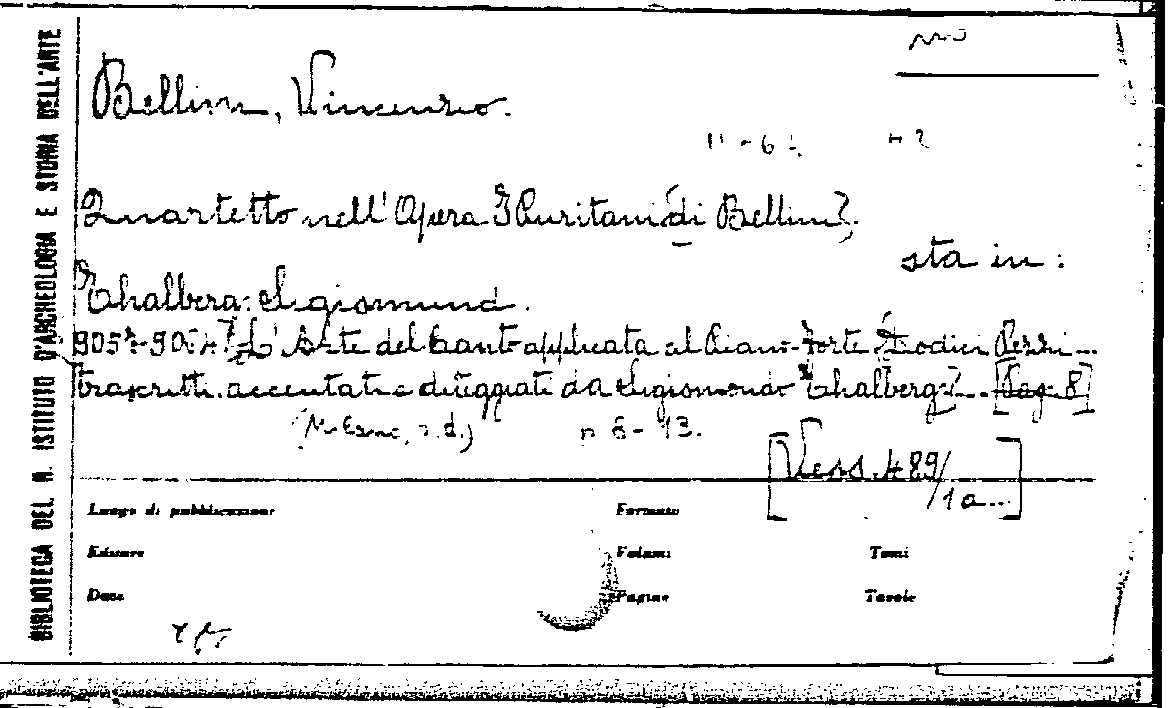 BIBLIOTECA DEL R. ISTITUTO D'ARCHEOLOGIA E STORIA DELL'ARTE
Bellini, Vincenzo.
Quartetto nell'Opera I Puritani di Bellini.
sta in:
Thalberg: Sigismund.
L'Arte del Canto applicata al Piano-forte Dodici Pezzi...
trascritti. accentati e diteggiati da Sigismondo Thalberg... [Pag. 8]
(Milano, s.d.) n 6-13.
[Vess. 489/
1a...]
Luogo di pubblicazione Formato
Editore Volumi Tomi
Data Pagine Tavole